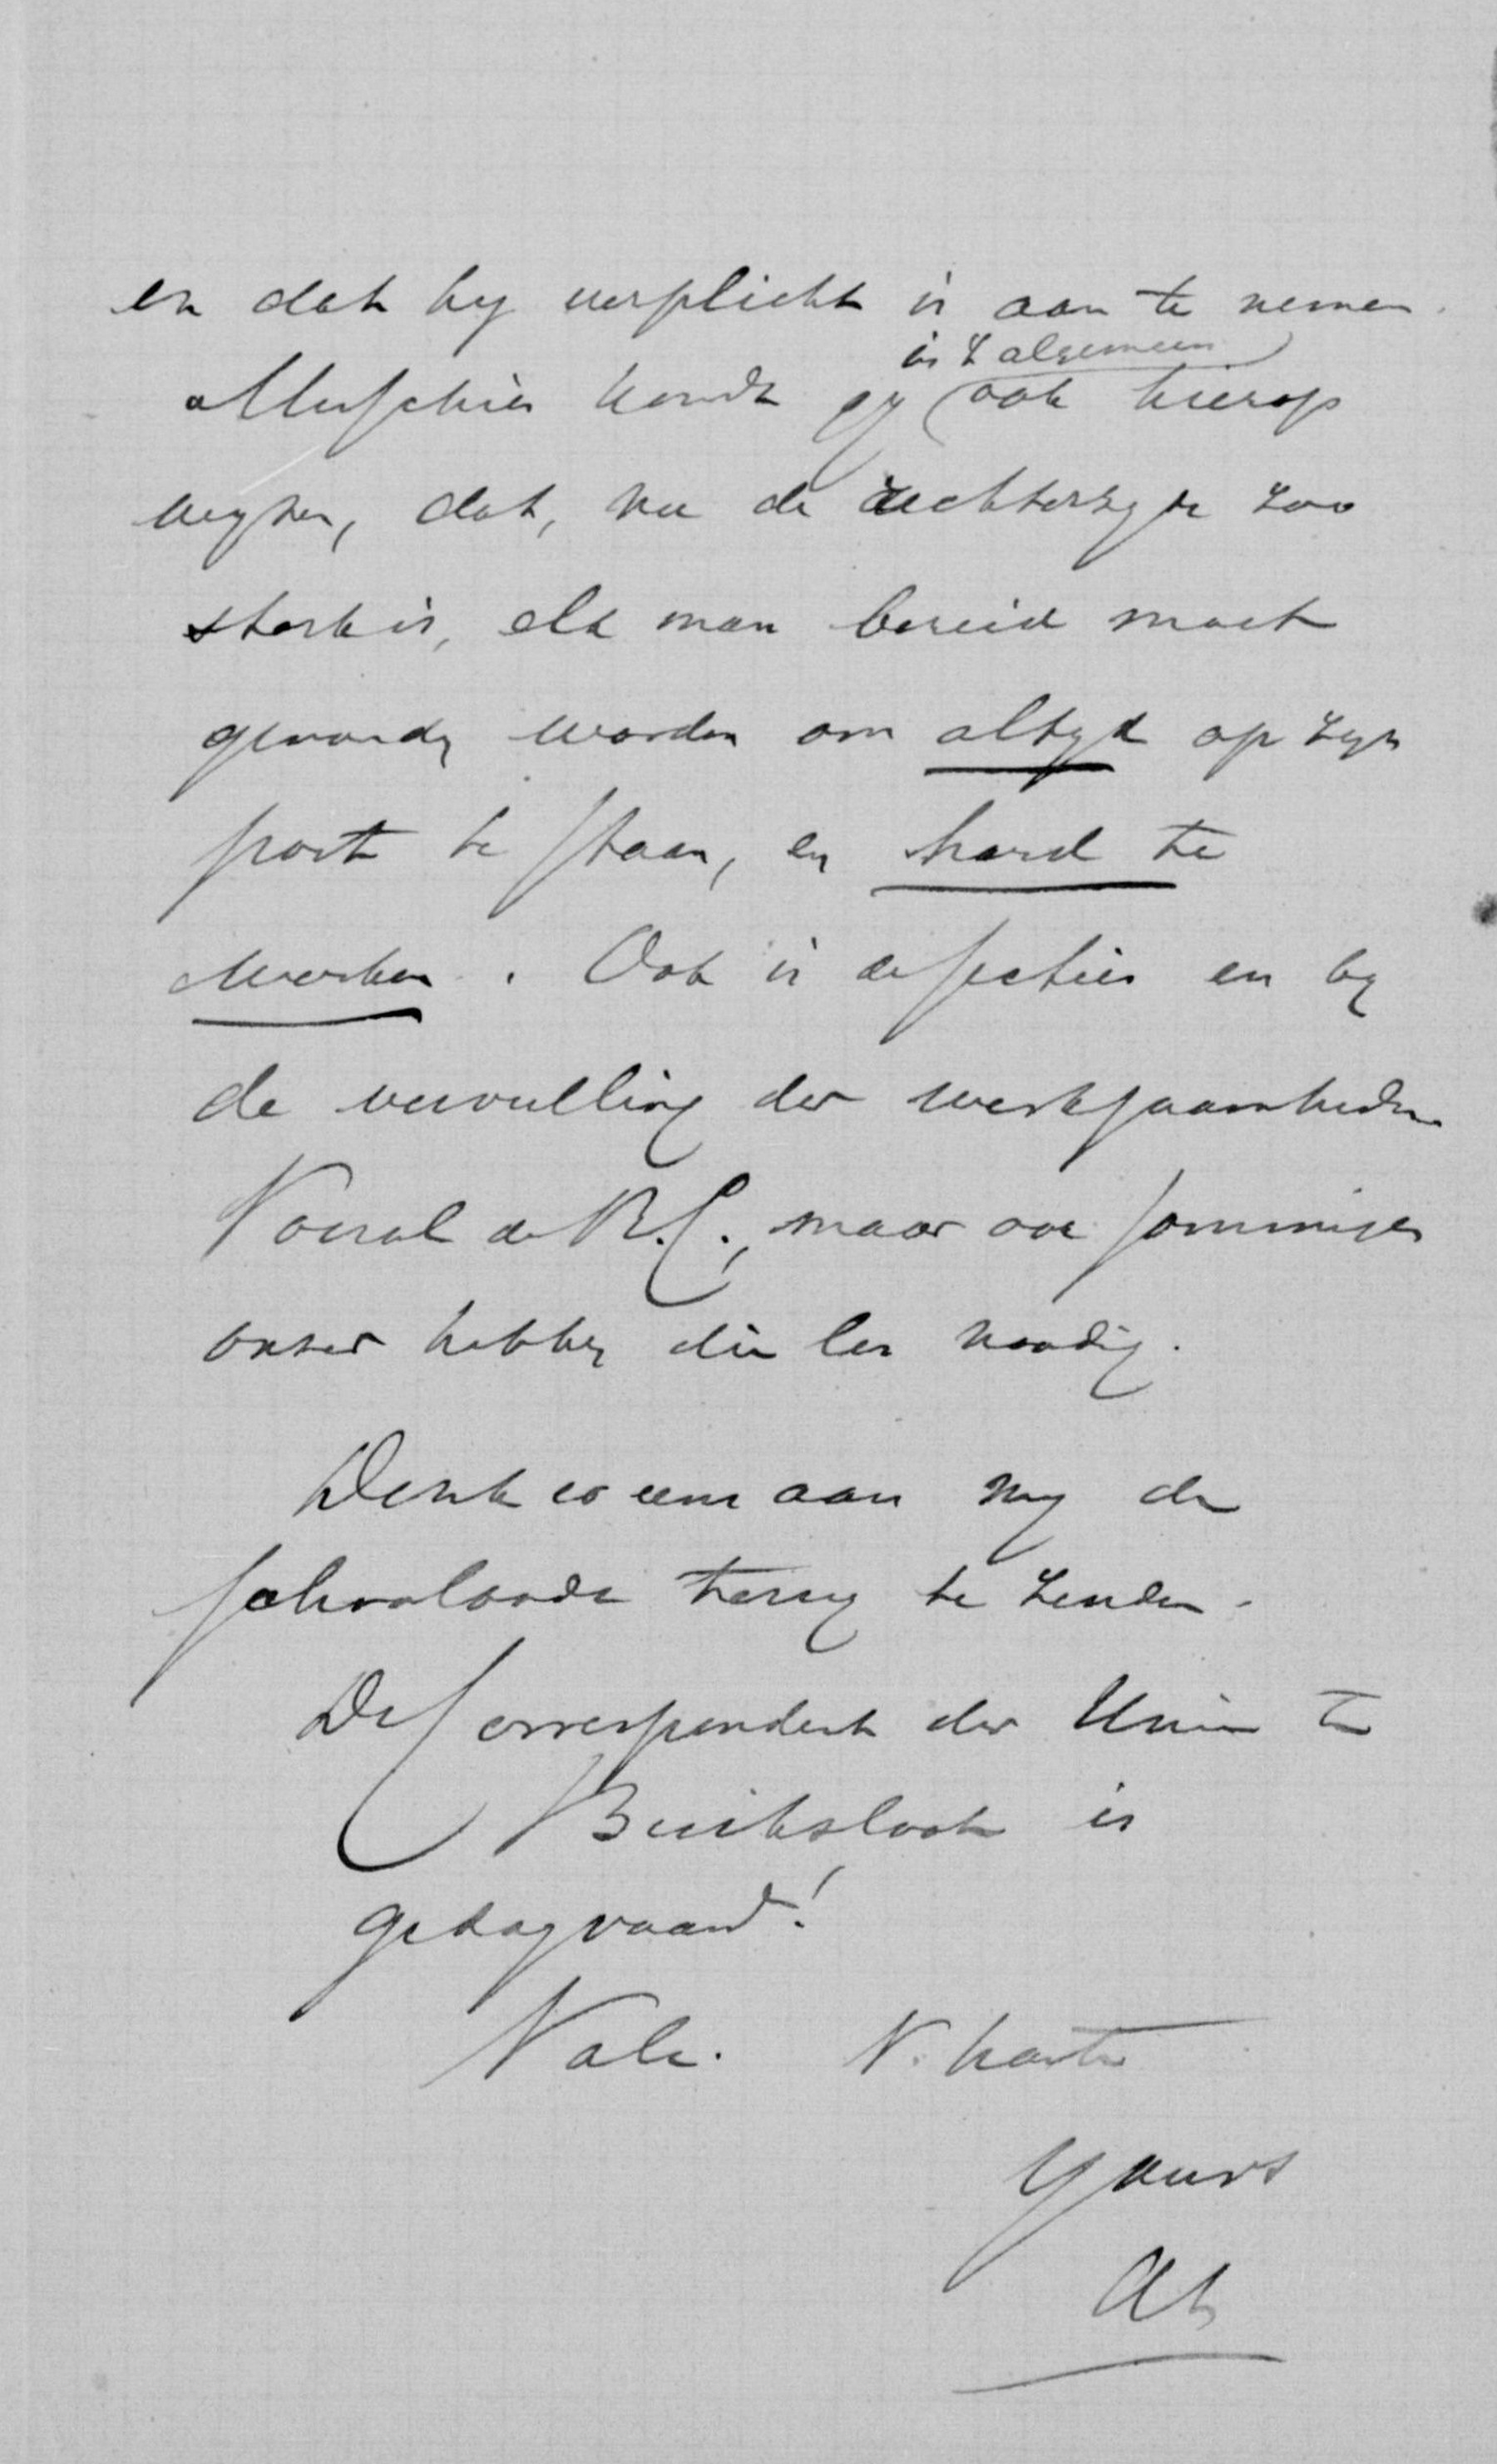 en dat hy verplicht is aan te nemen.
in 't algemeen
Misschien kondt gy ook hierop
wyzen, dat, nu de rechterzyde zoo
sterk is, elk man bereid moet
gevonden worden om altyd op zyn
post te staan, en hard te
werken. Ook in de secties en by
de vervulling der werkzaamheden
Vooral de R.C., maar ook sommigen
onzer hebben die les noodig.
Denk er eens aan my de
te zenden.
De Correspondent der Unie te
Buiksloot is
gedagvaard!
Vale. t.
Yours